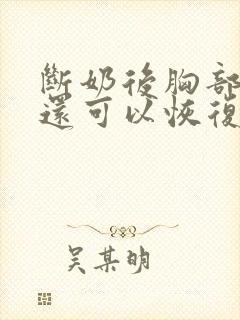 斷奶後胸部
還可以恢復
吳某明